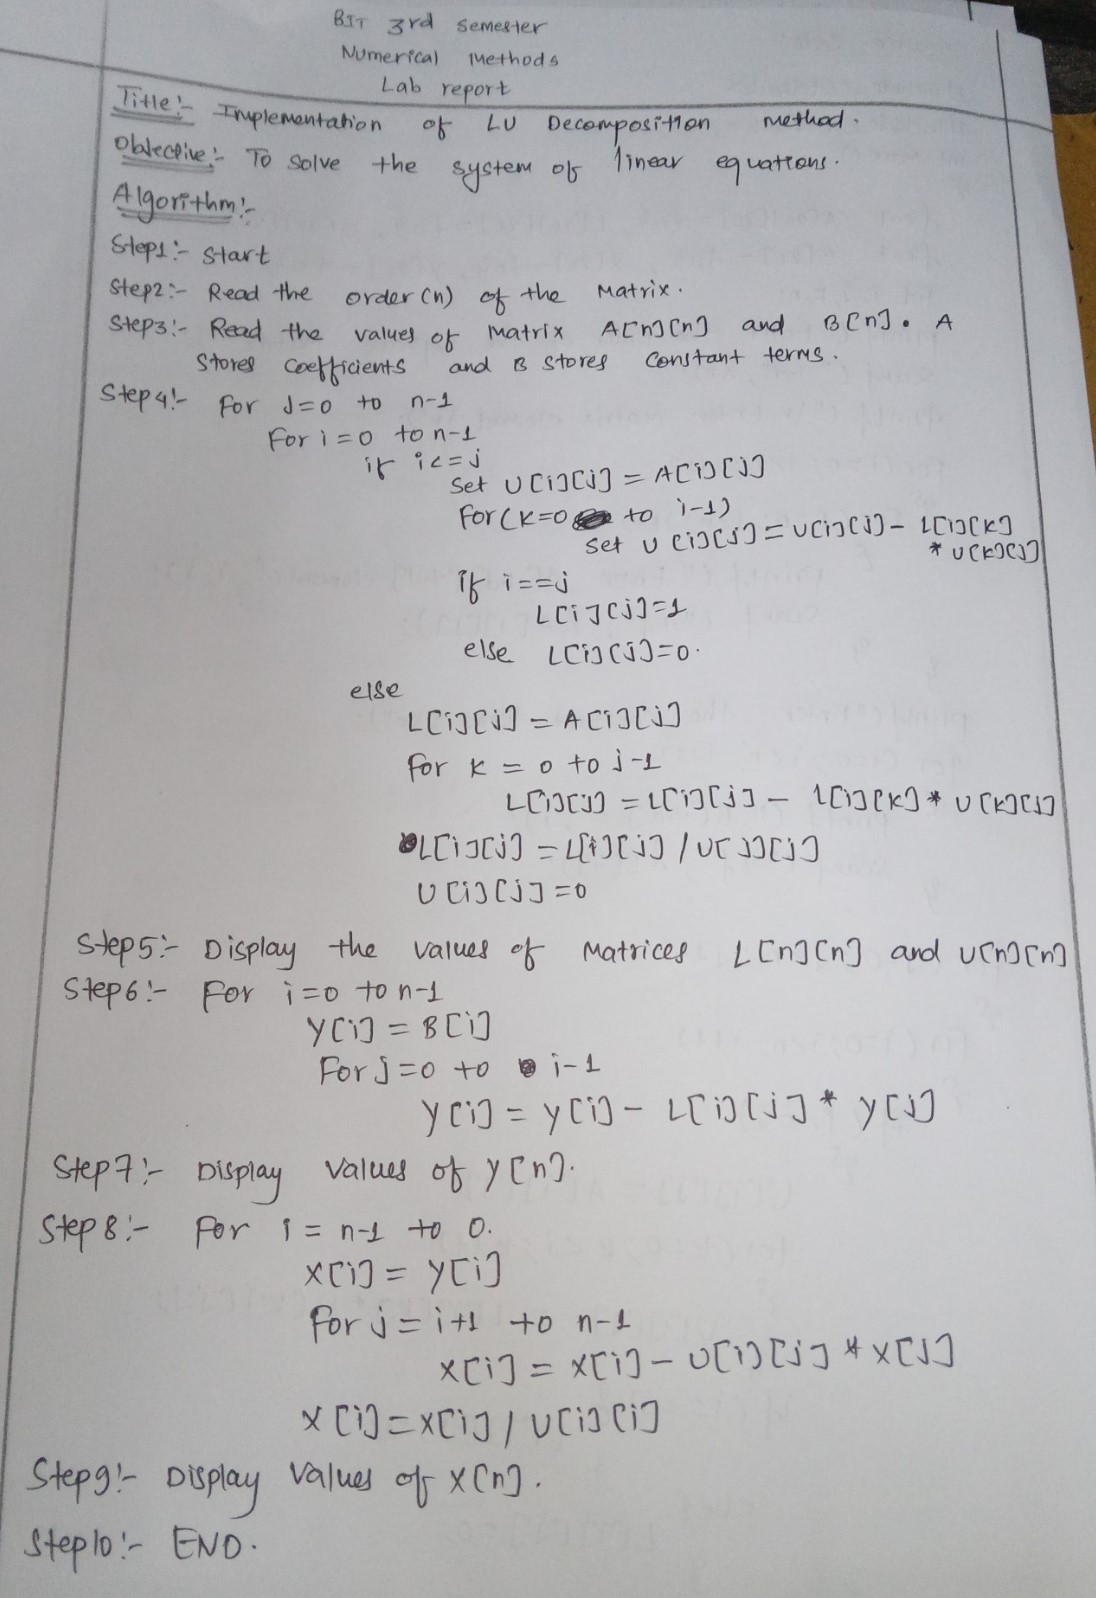 BIT 3rd semester
Numerical Methods
Lab report
Title:- Implementation of LU Decomposition method.
Objective:- To solve the system of linear equations.
Algorithm:-
Step1:- Start
Step2:- Read the order(n) of the Matrix.
Step3:- Read the values of Matrix A[n][n] and B[n]. A
Stores coefficients and B stores constant terms.
Step4:- For J=0 to n-1
For i=0 to n-1
if i<=j
Set U[i][j] = A[i][j]
For(K=0 to i-1)
Set U[i][j]=U[i][j]- L[i][k]
* U[k][j]
if i==j
L[i][j]=1
else L[i][j]=0.
else
L[i][j] = A[i][j]
For k = 0 to j-1
L[i][j] = L[i][j] - L[i][k] * U[k][j]
L[i][j] = L[i][j] / U[j][j]
U[i][j]=0
Step5:- Display the values of Matrices L[n][n] and U[n][n]
Step6:- For i=0 to n-1
Y[i] = B[i]
For j=0 to i-1
Y[i] = Y[i] - L[i][j] * Y[j]
Step7:- Display values of Y[n].
Step 8:- For i = n-1 to 0.
X[i] = Y[i]
For j = i+1 to n-1
X[i] = X[i] - U[i][j] * X[j]
X[i]=X[i] / U[i][i]
Step9:- Display values of X[n].
Step10:- END.